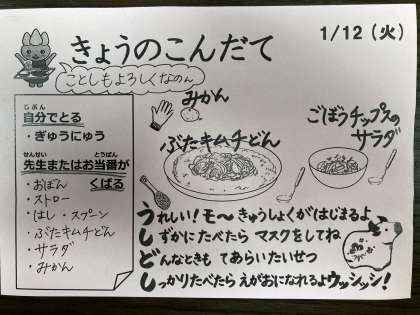 きょうのこんだて
1/12（火）
ことしもよろしくなのん
じぶん
自分でとる
・ぎゅうにゅう
せんせい とうばん
先生またはお当番が
くばる
・おぼん
・ストロー
・はし・スプーン
・ぶたキムチどん
・サラダ
・みかん
みかん
ぶたキムチどん
ごぼうチップスの
サラダ
うれしい！モ〜きゅうしょくがはじまるよ
しずかにたべたら マスクをしてね
どんなときも てあらいたいせつ
しっかりたべたら えがおになれるよウッシッシ！